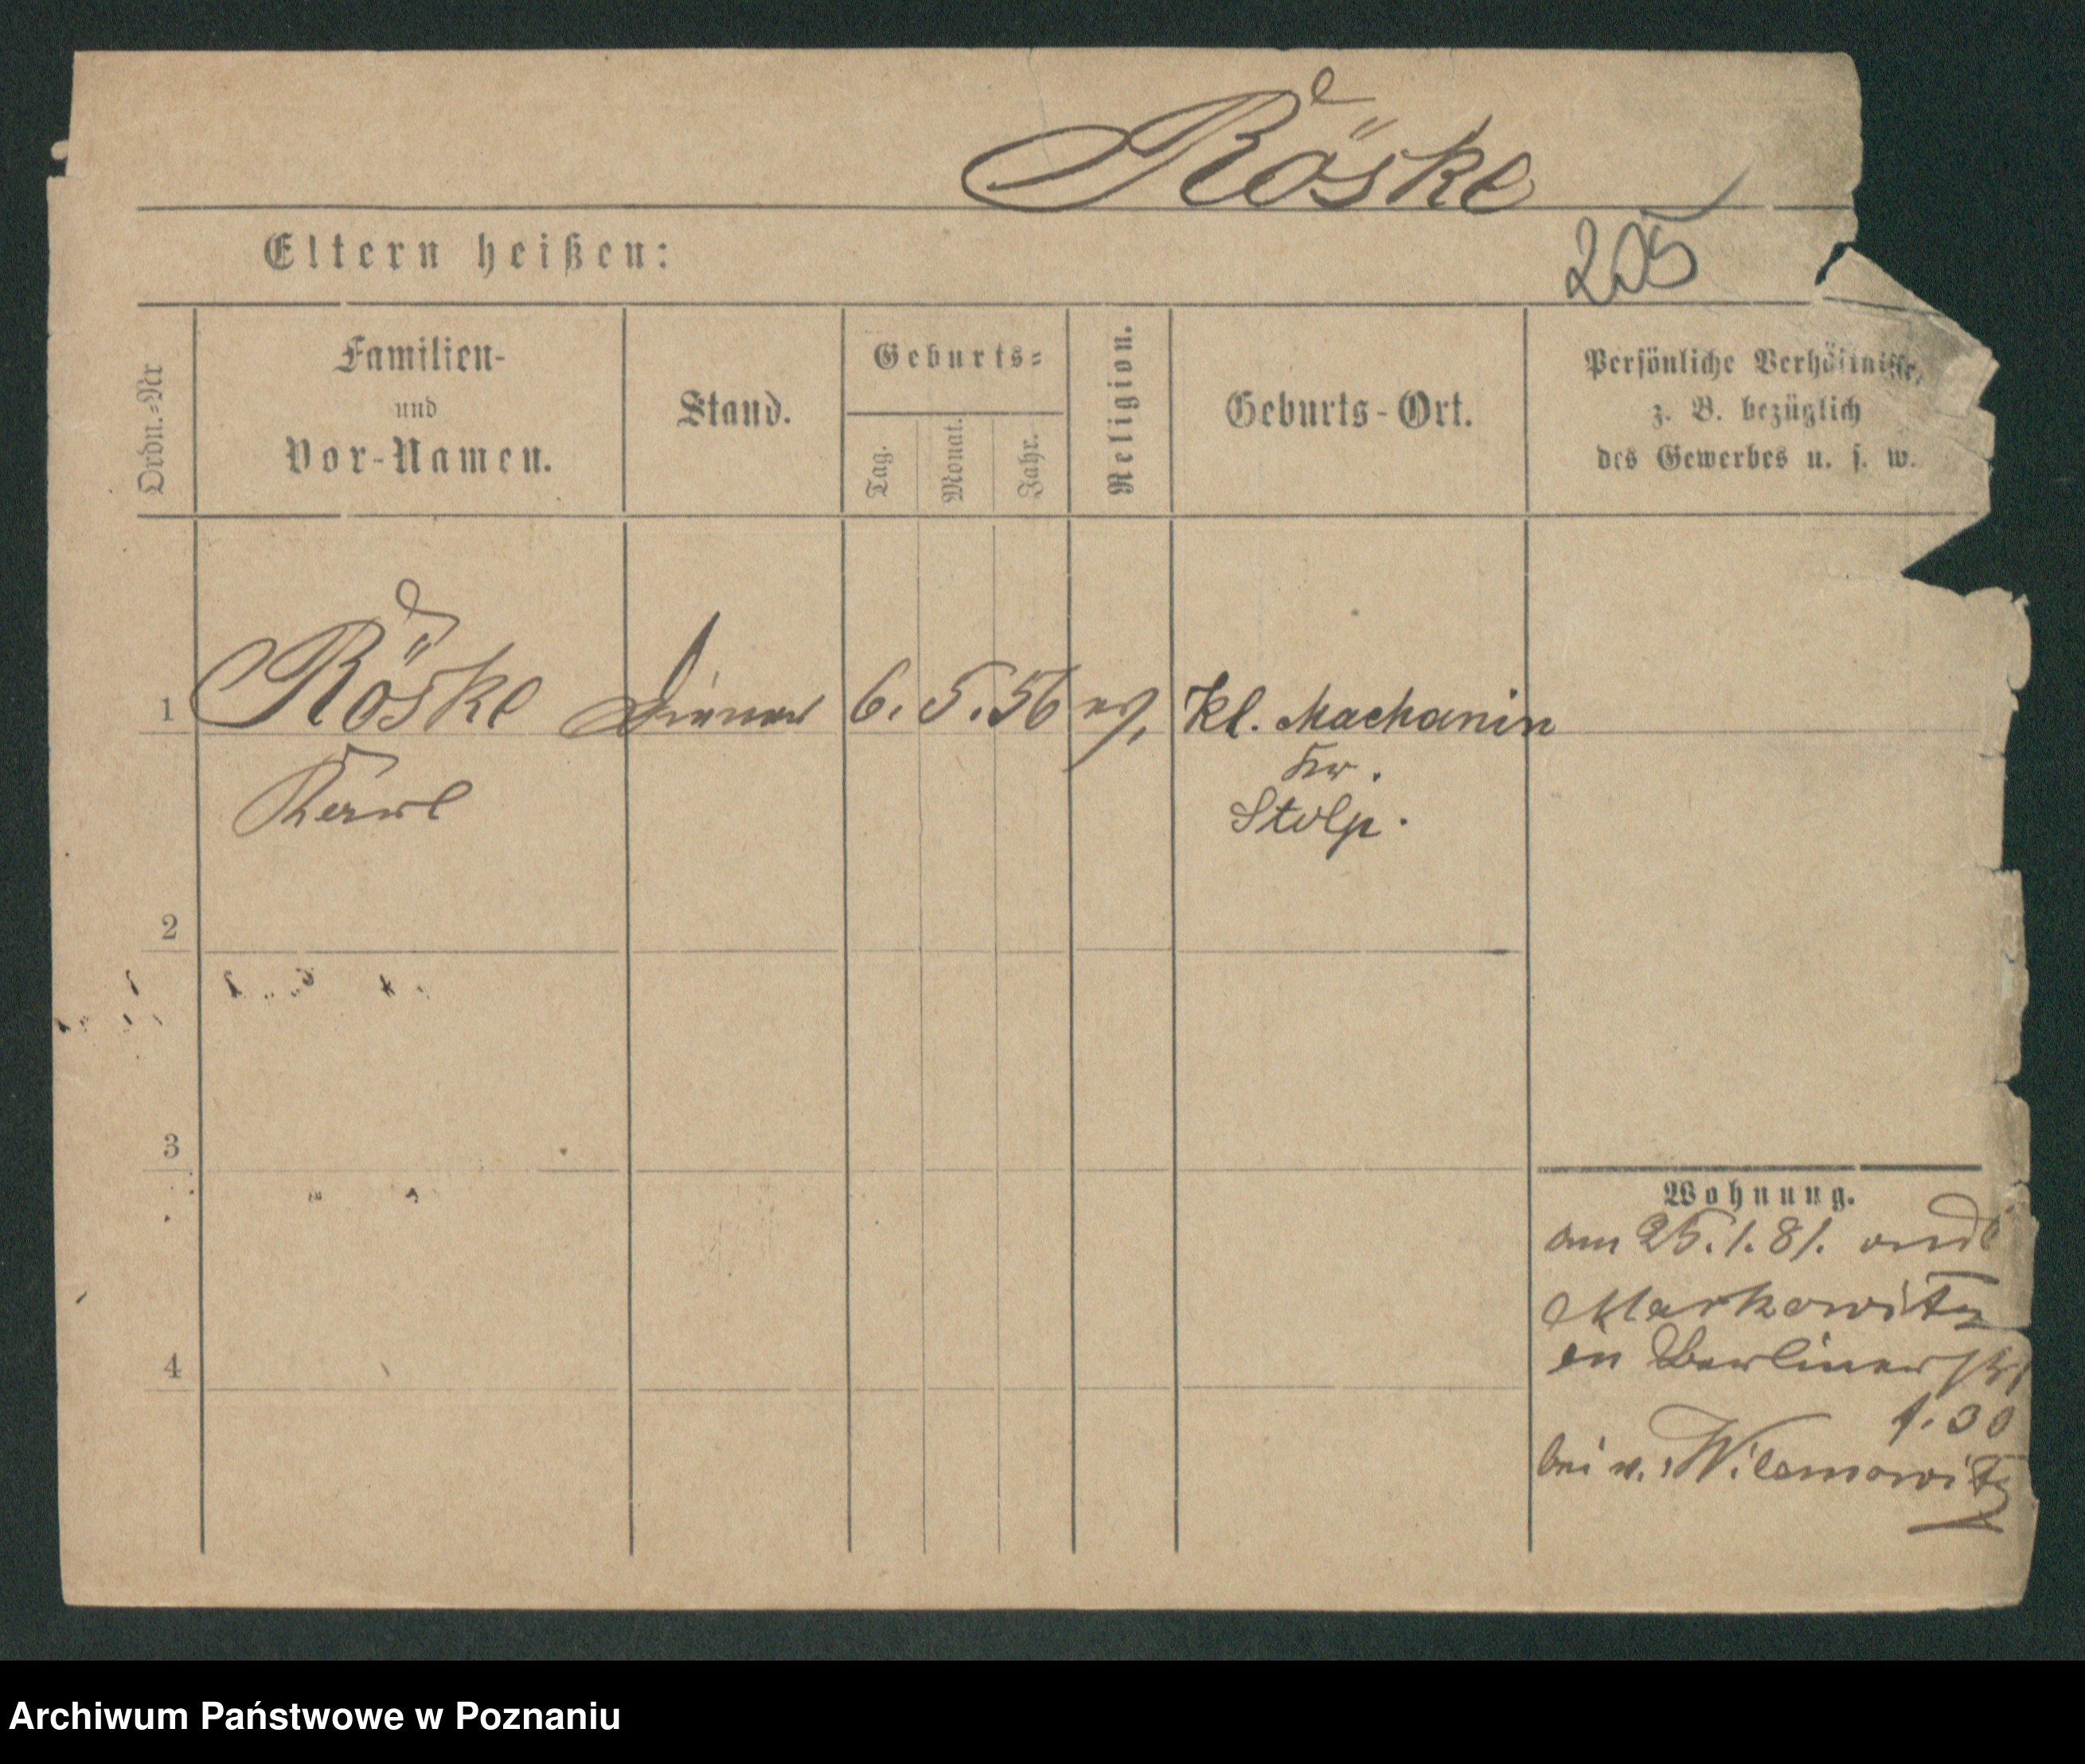 Röske
205
Eltern heißen:
Ordn.-Nr
Familien-
und
Vor-Namen.
Stand.
Geburts-
Tag.
Monat.
Jahr.
Religion.
Geburts-Ort.
Persönliche Verhältnisse,
z. B. bezüglich
des Gewerbes u. s. w.
1 Röske Diener 6. 5. 56 ev. Kl. Machanin
Kr.
Karl Stolp.
2
3
Wohnung.
am 25.1.81.
Markowitz
4
in Berlinerstr
1.30
bei v. Wilamowitz
Archiwum Państwowe w Poznaniu